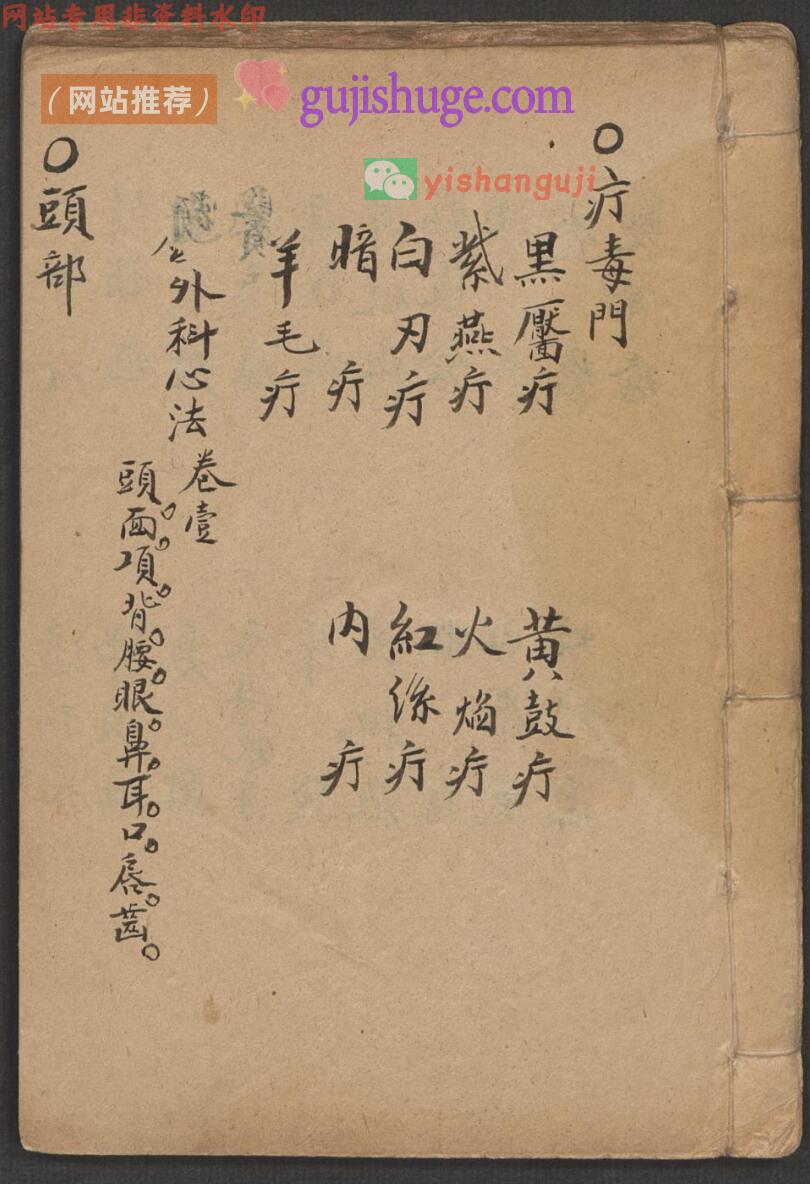 网站专用非资料水印
（网站推荐）
gujishuge.com
yishanguji
○疔毒門
黒靨疔
黄鼓疔
紫燕疔
火焰疔
白刃疔
紅絲疔
暗疔
内疔
羊毛疔
外科心法卷壹
頭。面。項。背。腰。眼。鼻。耳。口。唇。齒。
○頭部